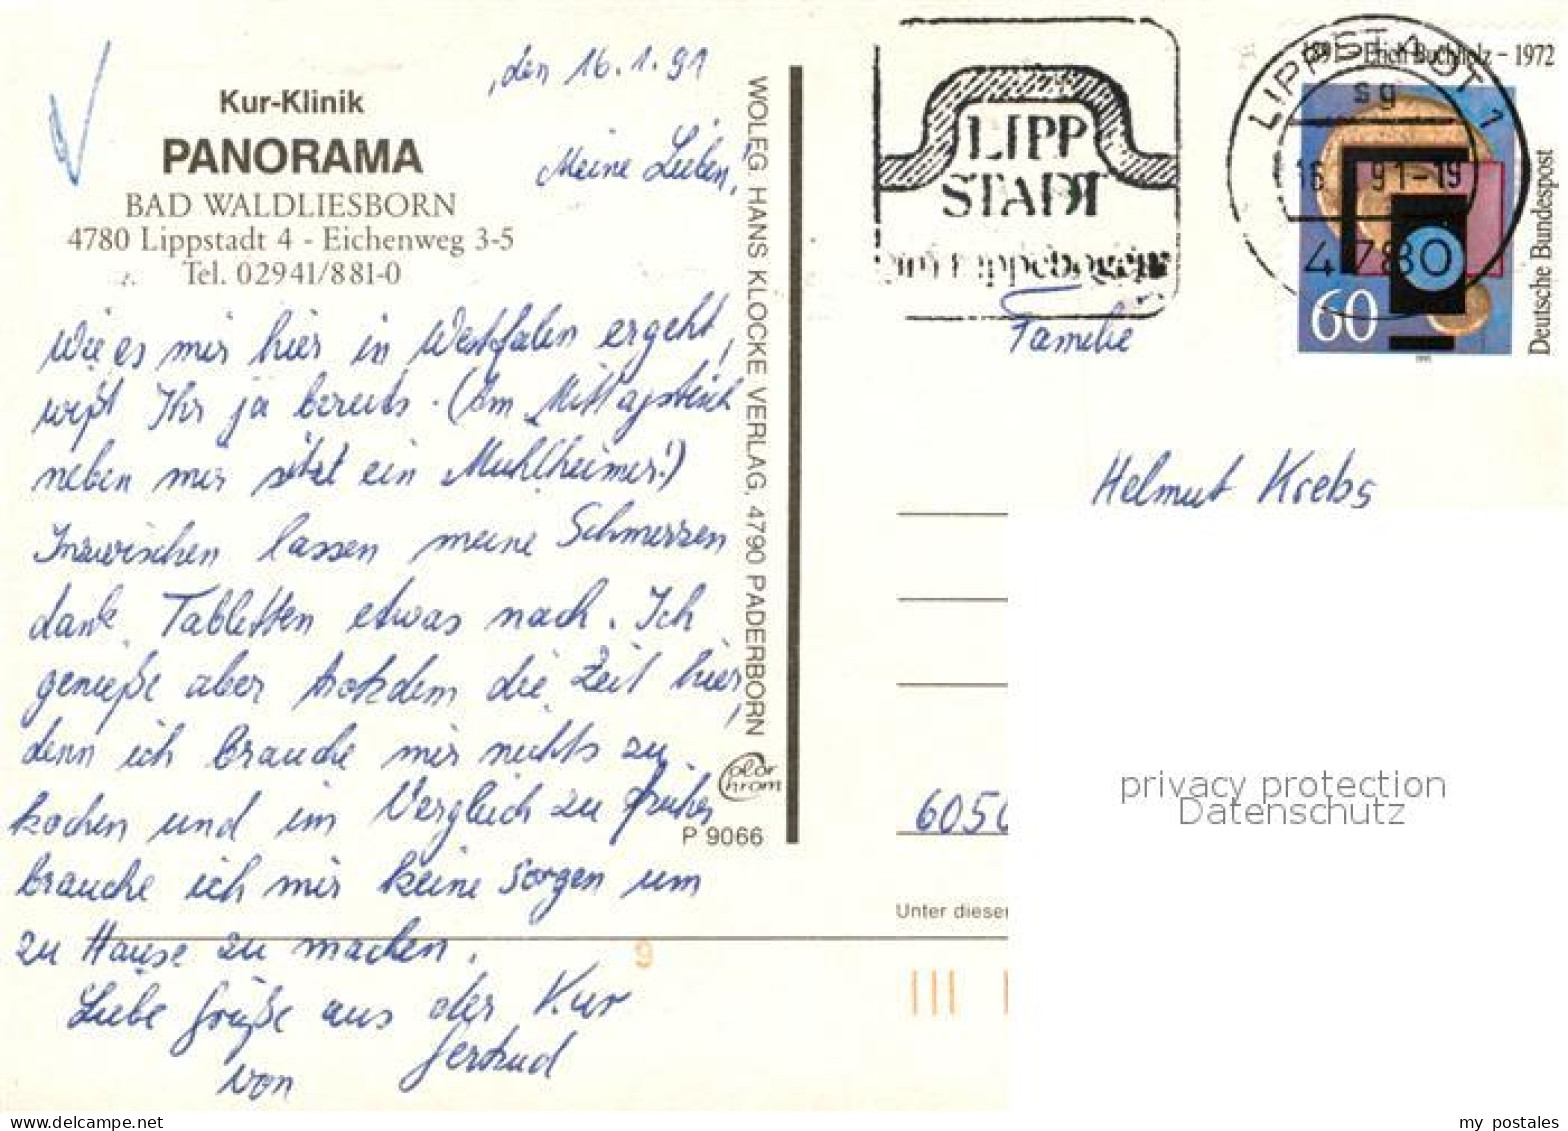 Kur-Klinik
PANORAMA
BAD WALDLIESBORN
4780 Lippstadt 4 - Eichenweg 3-5
Tel. 02941/881-0
, den 16.1.91
Meine Lieben!
Wie es mir hier in Westfalen ergeht,
wißt Ihr ja bereits. (Am Mittagstisch
neben mir sitzt ein Mühlheimer!)
Inzwischen lassen meine Schmerzen
dank Tabletten etwas nach. Ich
genieße aber trotzdem die Zeit hier,
denn ich brauche mir nichts zu
kochen und im Vergleich zu früher
brauche ich mir keine Sorgen um
zu Hause zu machen.
Liebe Grüße aus der Kur
von Gertrud
WOLFG. HANS KLOCKE VERLAG, 4790 PADERBORN
Color
Chrom
P 9066
9
LIPP
STADT
am Lippebogen
LIPPSTADT 1
sg
16. 91-19
4780
1891 - Erich Buchholz - 1972
60
Deutsche Bundespost
Familie
Helmut Krebs
605
Unter dieser
privacy protection
Datenschutz
my postales